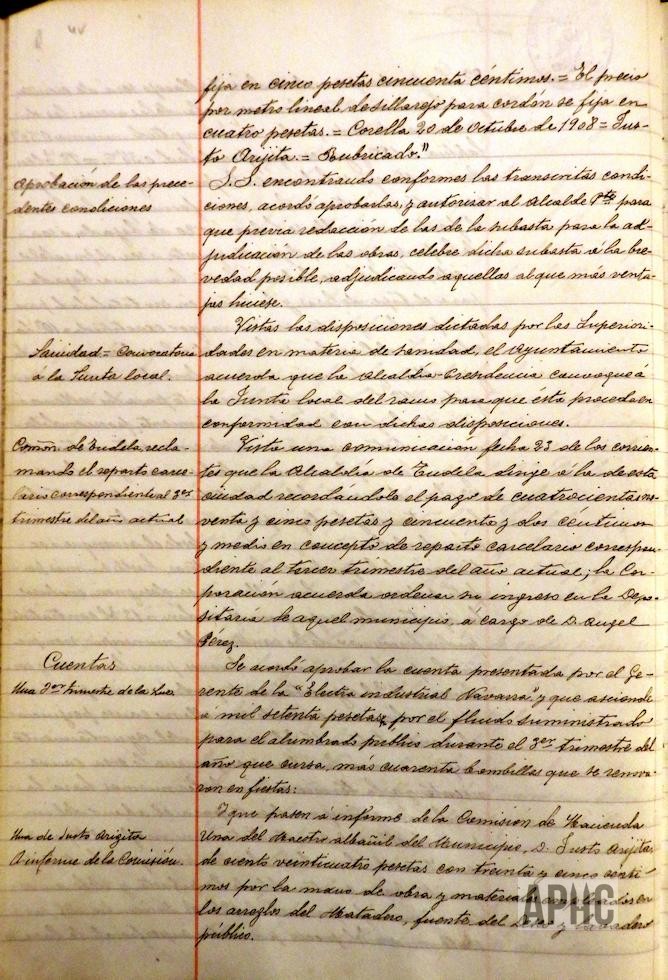 fija en cinco pesetas cincuenta céntimos. = El precio
por metro lineal de sillarejo para cordón se fija en
cuatro pesetas. = Corella 20 de Octubre de 1908 = Jus-
to Arijita. = Rubricado."
Aprobación de las prece-
dentes condiciones
S.S. encontrando conformes las transcritas condi-
ciones, acordó aprobarlas, y autorizar al Alcalde Pte para
que previa redacción de las de la subasta para la ad-
judicación de las obras, celebre dicha subasta a la bre-
vedad posible, adjudicando aquellas al que más venta-
jas hiciese.
Sanidad = Convocatoria
á la Junta local.
Vistas las disposiciones dictadas por las Superiori-
dades en materia de sanidad, el Ayuntamiento
acuerda que la Alcaldía-Presidencia convoque á
la Junta local del ramo para que ésta proceda en
conformidad con dichas disposiciones.
Comon. de Tudela, recla-
mando el reparto carce-
lario correspondiente al 3er
trimestre del año actual
Vista una comunicación fecha 23 de los corrien-
tes que la Alcaldía de Tudela dirige á la de esta
ciudad recordándole el pago de cuatrocientas no-
venta y cinco pesetas y cincuenta y dos céntimos
y medio en concepto de reparto carcelario correspon-
diente al tercer trimestre del año actual; la Cor-
poración acuerda ordenar su ingreso en la Depo-
sitaría de aquel municipio, á cargo de D. Angel
Pérez.
Cuentas
Una 3er trimestre de la Luz
Se acordó aprobar la cuenta presentada por el Ge-
rente de la "Electra industrial Navarra" y que asciende
á mil setenta pesetas, por el fluido suministrado
para el alumbrado público durante el 3er trimestre del
año que cursa, más cuarenta bombillas que se renova-
ron en fiestas:
Una de Justo Arijita
A informe de la Comisión.
Y que pasen á informe de la Comision de Hacienda
una del Maestro albañil del Municipio, D. Justo Arijita
de ciento veinticuatro pesetas con treinta y cinco cénti-
mos por la mano de obra y materiales empleados en
los arreglos del Matadero, fuente del y lavadero
público.
APHC